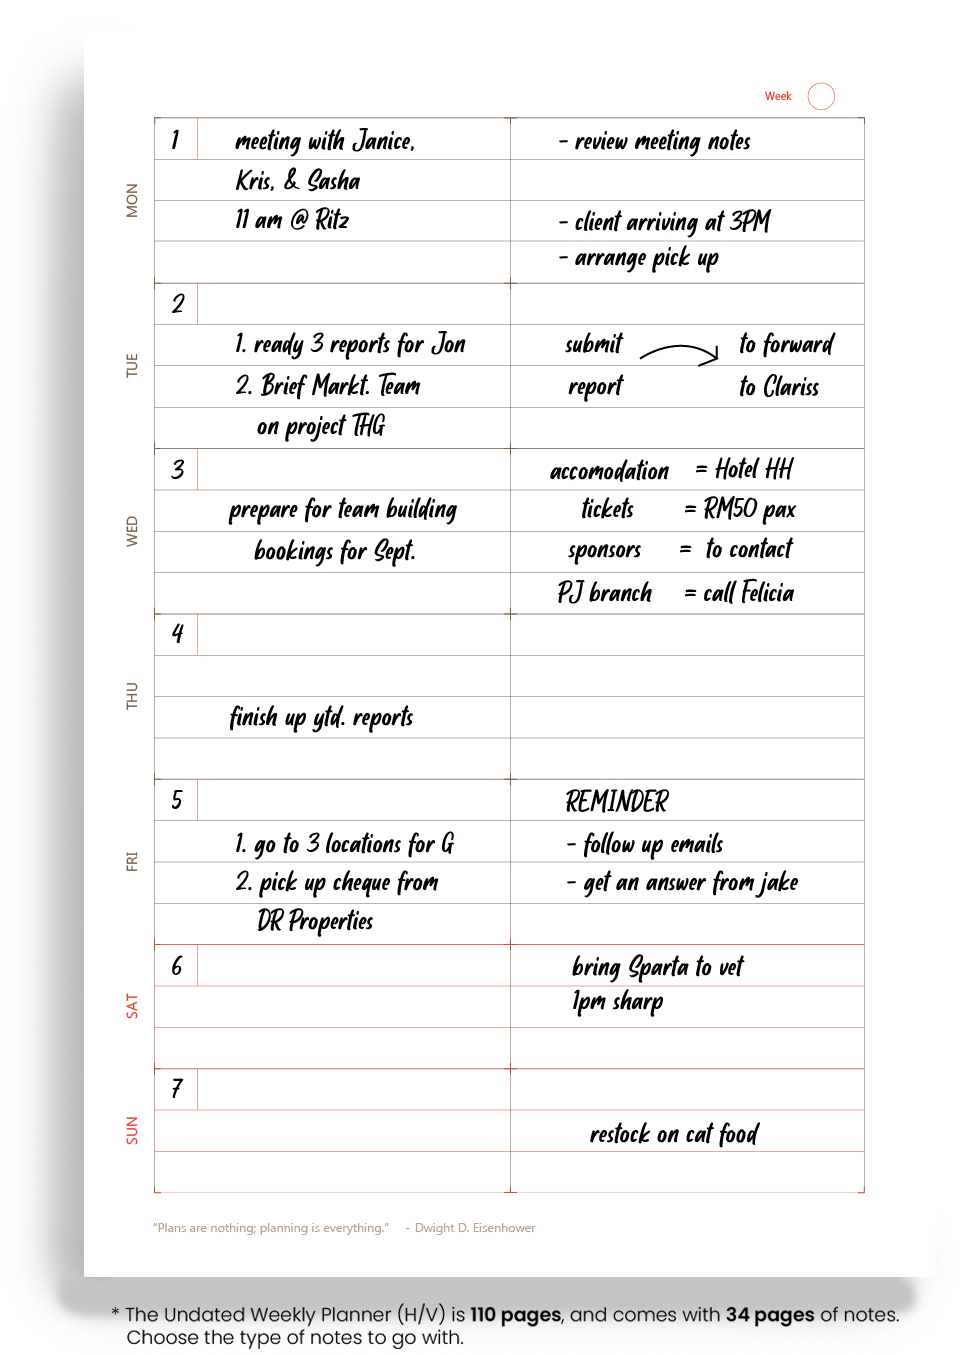 Week
MON
1
meeting with Janice,
Kris, & Sasha
11 am @ Ritz
- review meeting notes
- client arriving at 3PM
- arrange pick up
TUE
2
1. ready 3 reports for Jon
2. Brief Markt. Team
on project THG
submit to forward
report to Clariss
WED
3
prepare for team building
bookings for Sept.
accomodation = Hotel HH
tickets = RM50 pax
sponsors = to contact
PJ branch = call Felicia
THU
4
finish up ytd. reports
FRI
5
1. go to 3 locations for G
2. pick up cheque from
DR Properties
REMINDER
- follow up emails
- get an answer from jake
SAT
6
bring Sparta to vet
1pm sharp
SUN
7
restock on cat food
"Plans are nothing; planning is everything." - Dwight D. Eisenhower
* The Undated Weekly Planner (H/V) is 110 pages, and comes with 34 pages of notes.
Choose the type of notes to go with.